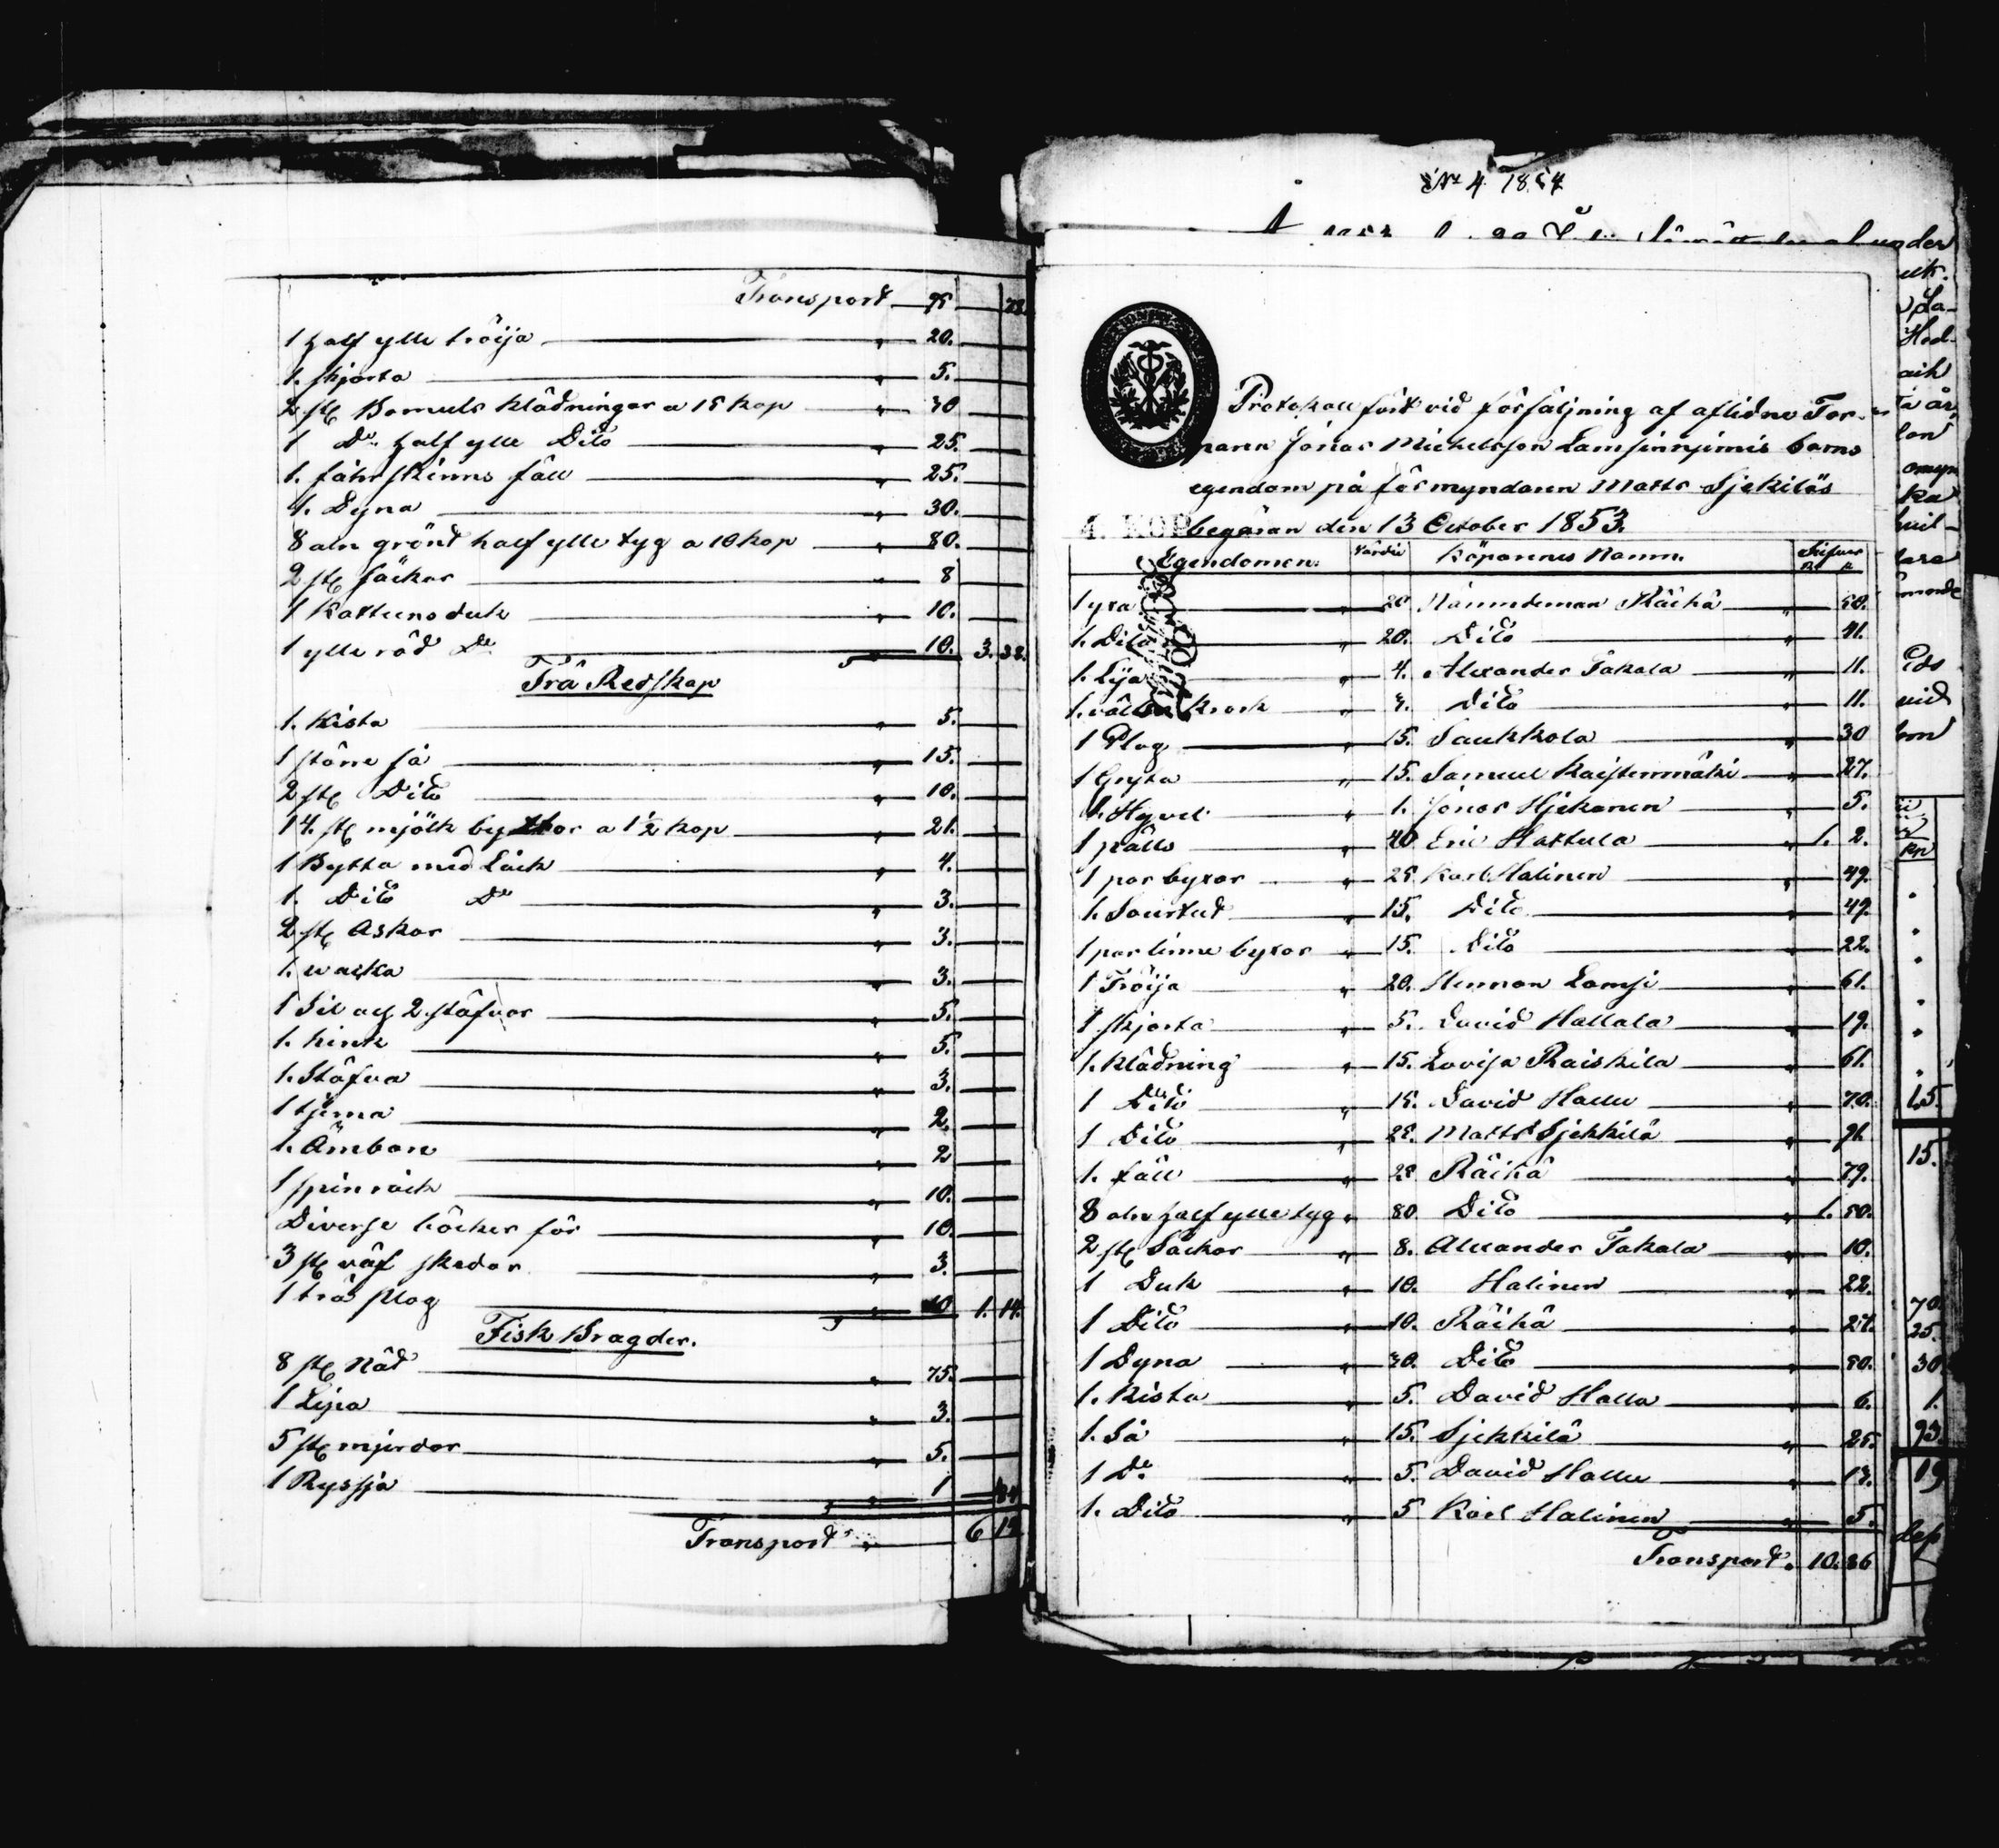 Transport 95 78.
1 half ylle tröija " 20.
1. skjorta " 5.
2 st Bomuls klädningar a 15 kop " 30
1 Do half ylle Dito " 25.
1. fåhrskinns fäll " 25.
1. Dyna " 30.
8 aln grönt half ylle tyg a 10 kop " 80.
2 st säckar " 8
1 Kattuns duk " 10.
1 ylle röd Do " 10. 3. 38.
Trä Redskap
1. Kista " 5.
1 större så " 15.
2 st Dito " 10.
14. st mjölk byttor a 1½ kop " 21.
1 Bytta med Läck " 4.
1. Dito Do " 3.
2 st Askar " 3.
1. wacka " 3.
1 Sil och 2 ståfvor " 5.
1. Kink " 5.
1. Ståfva " 3.
1 tjena " 2.
1. Ämbare " 2
1 spinråck " 10.
Diverse böcker för " 10.
3 st väf skedar " 3.
1 trä plog " 10 1. 14.
Fisk Bragder.
8 st Nät " 75.
1 Lina " 3.
5 st mjerdar " 5.
1 Ryssja " 1 84
Transport " 6 14
No 4 1854
Protokoll fördt vid försäljning af aflidne Tor-
paren Jonas Mickelsson Lamsinniemis barns
egendom på förmyndaren Matts Sjekiläs
4. KOP begäran den 13 October 1853.
Egendomen. Värdie Köparnes Namn. Silfver R k
1 yxa " 20 Nämndeman Räihä " 50.
1. Dito " 20. Dito " 41.
1. Lija " 4. Alexander Takala " 11.
1. krok " 3. Dito " 11.
1 Plog " 15. Saukkola " 30
1 Gryta " 15. Samuel Kaistenmäki " 27.
1. Hyvel " 1. Jonas Hjekanen " 5.
1 pälls " 40 Eric Hattula " 1. 2.
1 par byxor " 25 Karl Halinen " 49.
1. Sourtut " 15. Dito " 49.
1 par linne byxor " 15. Dito " 22.
1 Tröija " 20. Herman Lamsi " 61.
1 skjorta " 5. David Hallala " 19.
1. klädning " 15. Lovisa Raiskila " 61.
1 Dito " 15. David Hallu " 70.
1 Dito " 25. Matts Sjekkilä " 91.
1. fäll " 25 Räihä " 79.
8 aln half ylle tyg " 80. Dito " 1. 50.
2 st Säckar " 8. Alexander Takala " 10.
1 Duk " 10. Halinen " 22.
1 Dito " 10. Räihä " 27.
1 Dyna " 30. Dito " 50.
1. Kista " 5. David Halla " 6.
1. Så " 15. Sjekkilä " 25.
1 Do " 5. David Hallu " 13.
1. Dito " 5 Karl Halinen " 5.
Transport. 10. 86